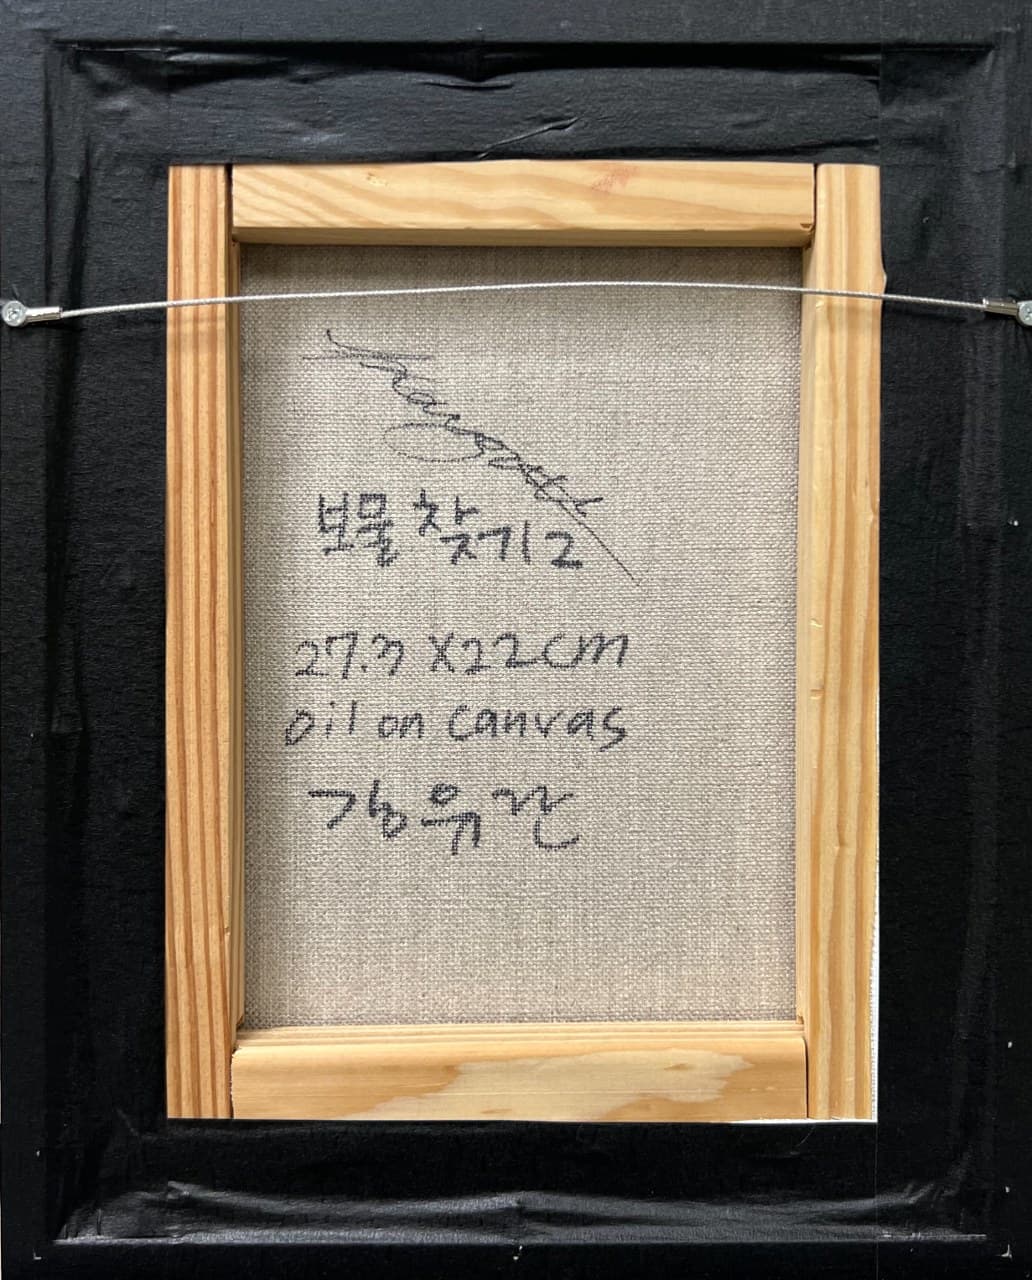 보물 찾기2
27.3 X22cm
oil on canvas
강유진